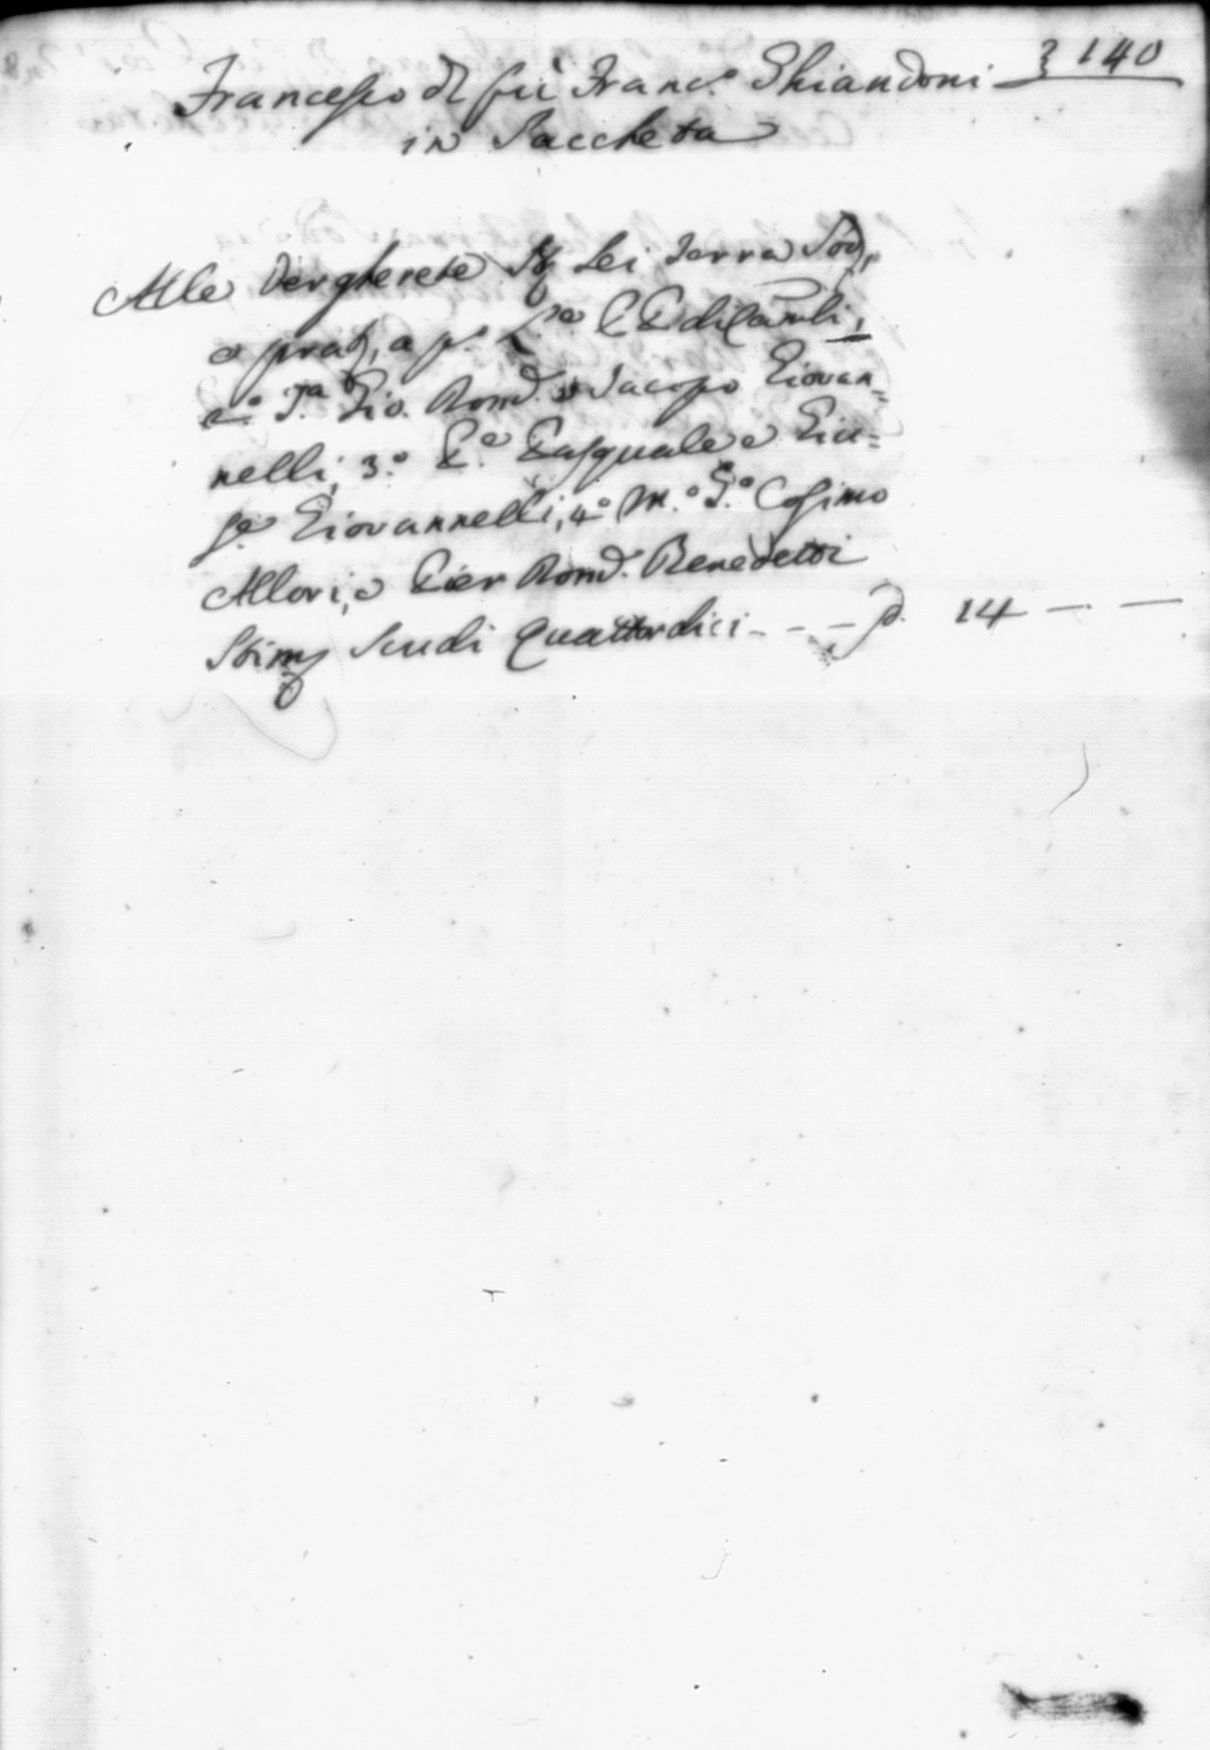 140
Francesco di fù Franc.º Ghiandoni
in Saccheta
Alle Vergherete St. Sei Terra Sod,
e prat, a p.º
2.º Gio. Rom.º Jacopo Giovan=
nelli, 3.º Pasquale e Giu=
se Giovannelli, 4.º M.º Cosimo
Allori, e Pier Rom.º Benedetti
Stim Scudi Quattordici - - - 14 — —